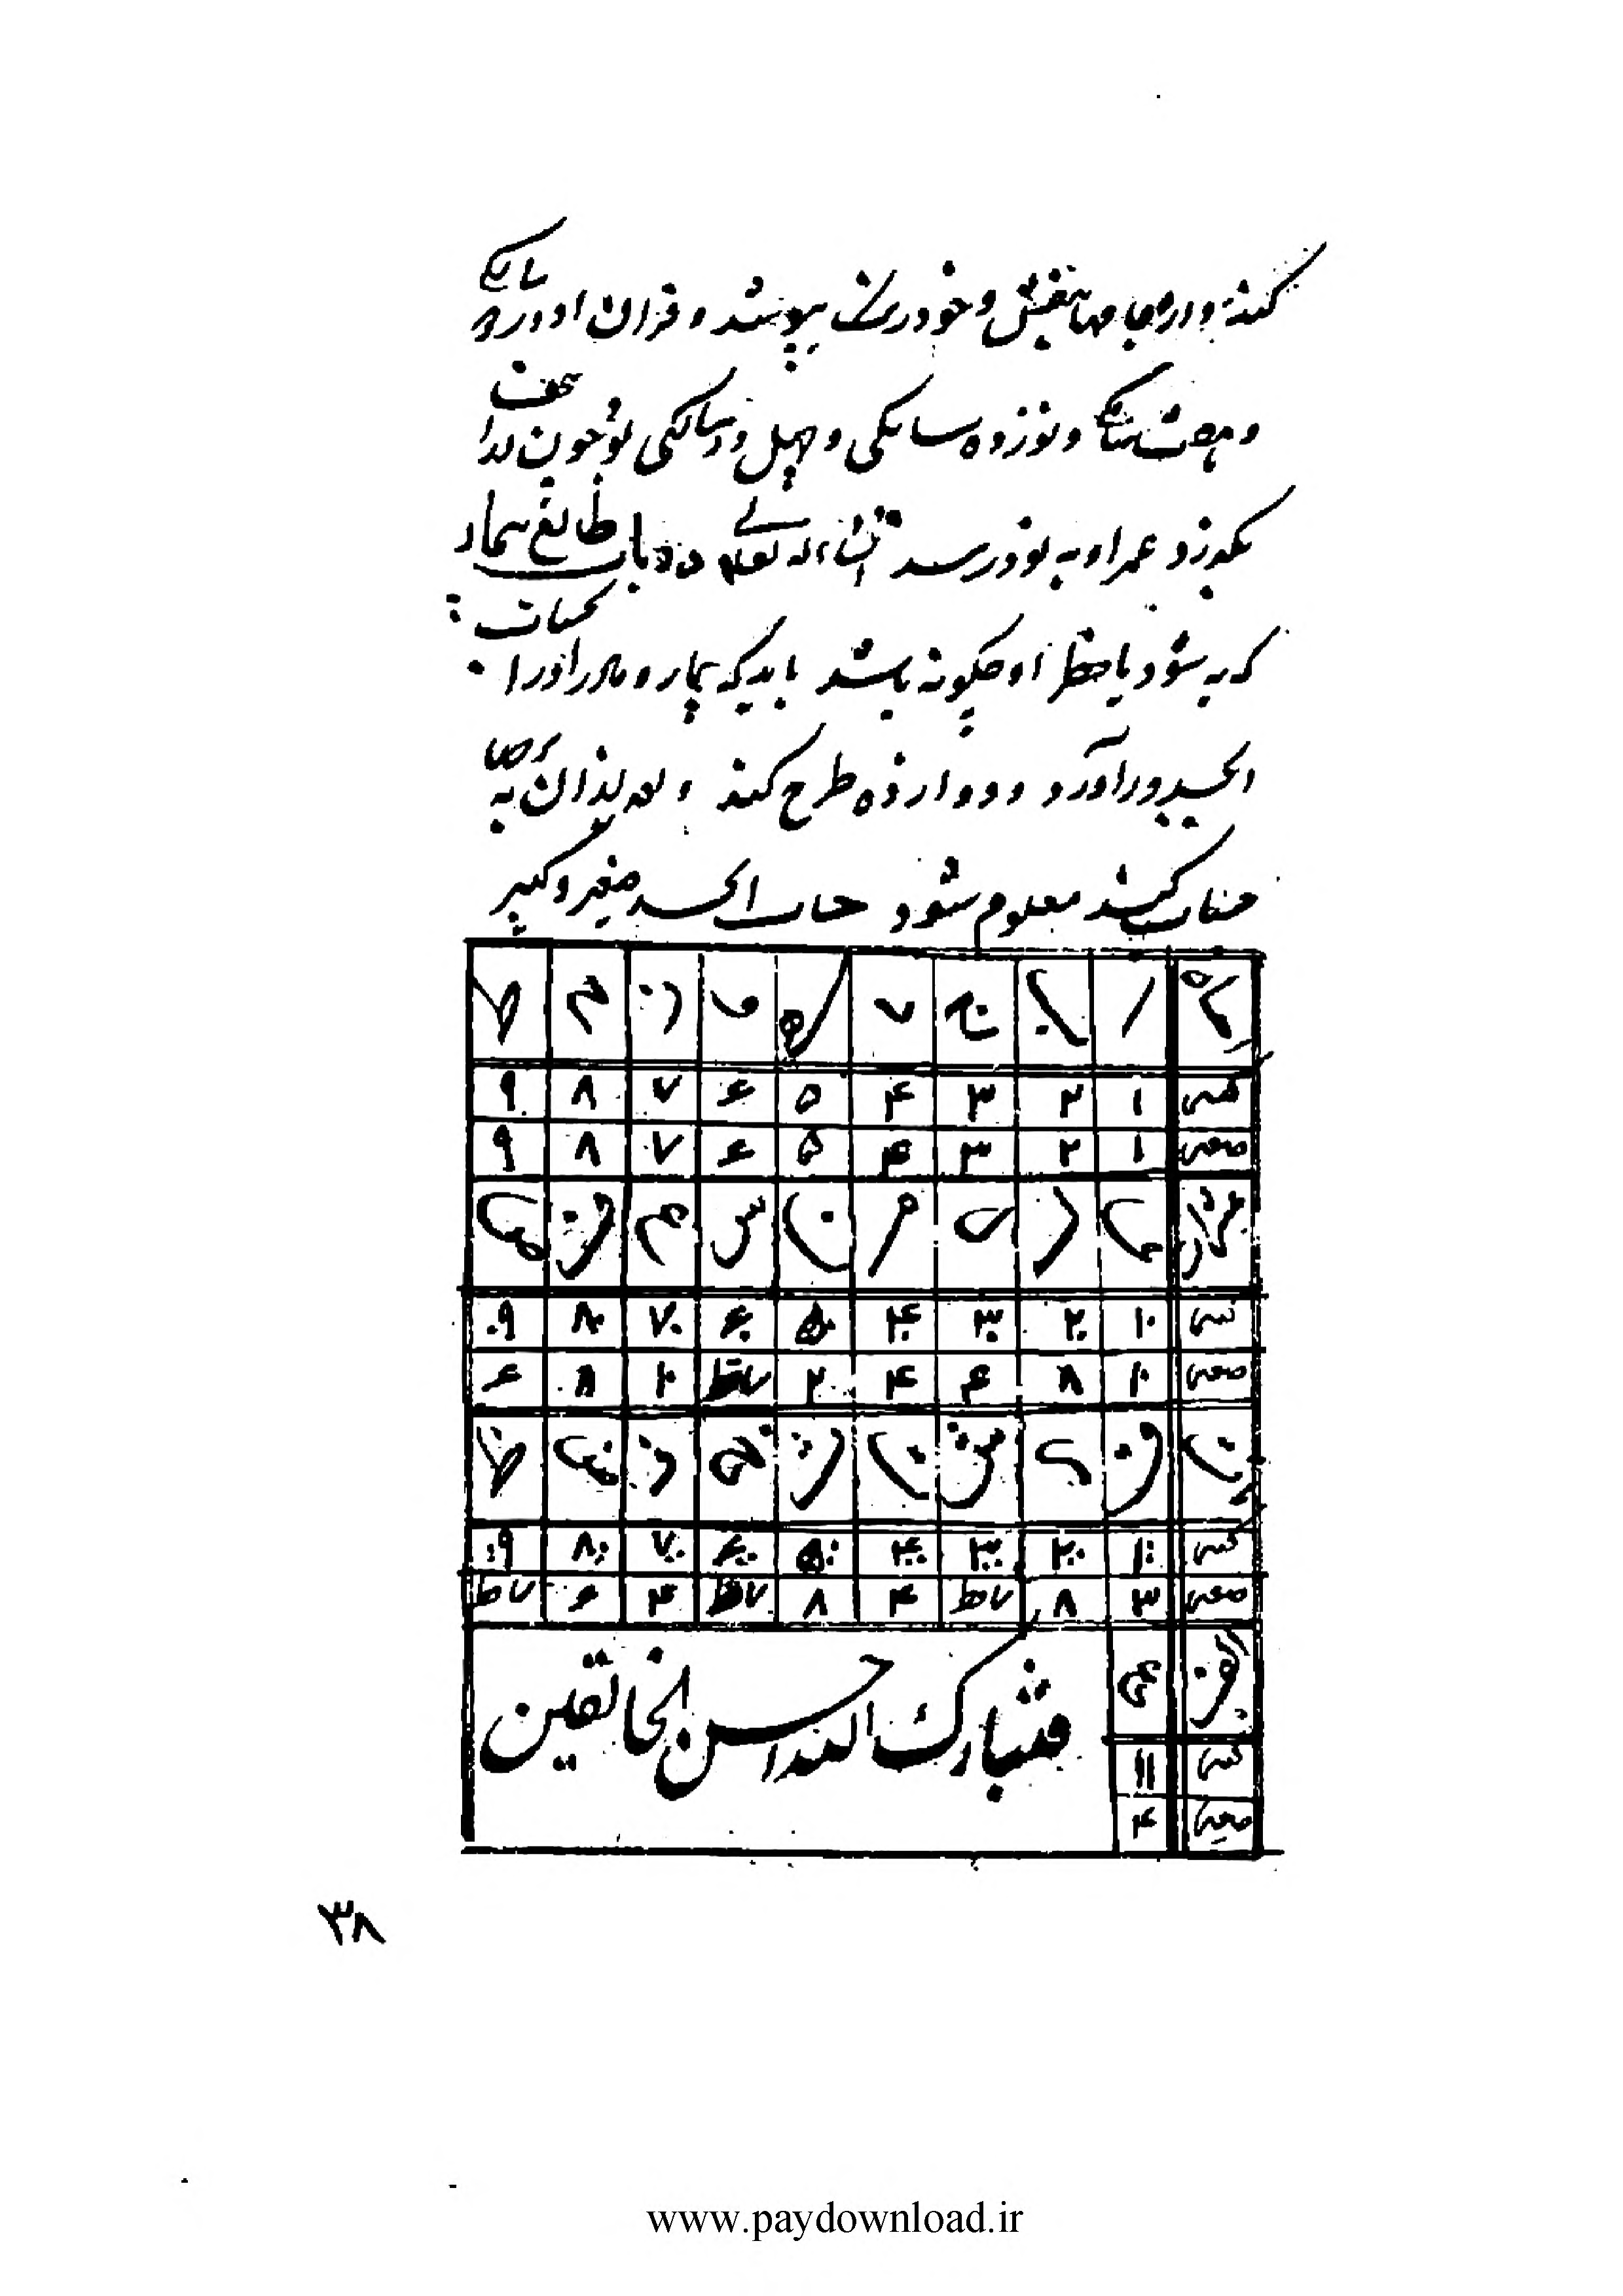 کنند و از جامها بنفش و خود رنگ بپوشد و قران او در یکسالگی
و هشت سالگی و نوزده سالگی و چهل و دو سالگی بود چون بدان
بگذرد عمر او به نود رسد انشاء الله تعالی در باب طالع بیمار
که به شود یا خطر او چگونه باشد باید که بیمار و مادر او را بحساب
ابجد در آورد و دوازده طرح کند و بعد از آن به
حساب کنند معلوم شود حساب ابجد صغیر و کبیر
ا ب ج د ه و ز ح ط
کبیر ۱ ۲ ۳ ۴ ۵ ۶ ۷ ۸ ۹
صغیر ۱ ۲ ۳ ۴ ۵ ۶ ۷ ۸ ۹
ی ک ل م ن س ع ف ص
کبیر ۱۰ ۲۰ ۳۰ ۴۰ ۵۰ ۶۰ ۷۰ ۸۰ ۹۰
صغیر ۱۰ ۸ ۶ ۴ ۲ ساقط ۱۰ ۸ ۶
ق ر ش ت ث خ ذ ض ظ
کبیر ۱۰۰ ۲۰۰ ۳۰۰ ۴۰۰ ۵۰۰ ۶۰۰ ۷۰۰ ۸۰۰ ۹۰۰
صغیر ۳ ۸ ساقط ۴ ۸ ساقط ۴ ۶ ساقط
غ
فتبارک الله احسن الخالقین
کبیر ۱۱
صغیر ۴
۳۸
www.paydownload.ir